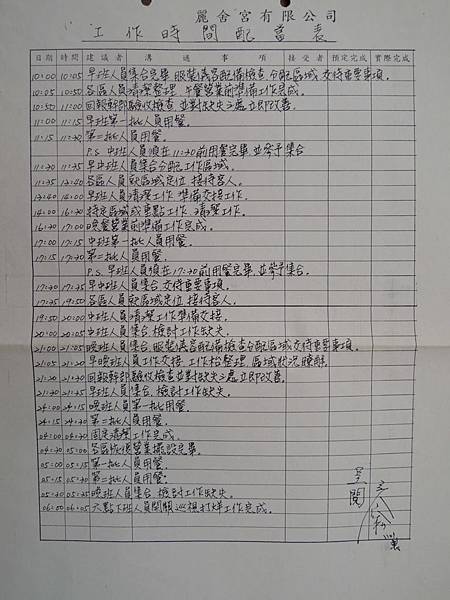 麗舍宮有限公司
工作時間配當表
日期 時間 建議者 溝通事項 接受者 預定完成 實際完成
10:00 10:05 早班人員集合完畢 服裝儀容配備檢查 分配區域 交待重要事項。
10:05 10:50 各區人員清潔整理 午餐營業前準備工作完成。
10:50 11:00 回報幹部驗收檢查 並對缺失之處立即改善。
11:00 11:15 早班第一批人員用餐。
11:15 11:30 第二批人員用餐。
P.S. 中班人員須在11:30前用餐完畢,並參予集合
11:30 11:35 早中班人員集合分配工作區域。
11:35 13:40 各區人員就區域定位 接待客人。
13:40 14:00 早班人員清潔工作 準備交接工作。
14:00 16:30 特定區域或重點工作 清潔工作。
16:30 17:00 晚餐營業前準備工作完成。
17:00 17:15 中班第一批人員用餐。
17:15 17:30 第二批人員用餐。
P.S. 早班人員須在17:30前用餐完畢,並參予集合。
17:30 17:35 早中班人員集合 交待重要事項。
17:35 19:50 各區人員就區域定位,接待客人。
19:50 20:00 中班人員清潔工作準備交接。
20:00 20:05 中班人員集合 檢討工作缺失。
21:00 21:05 晚班人員集合.服裝儀容配備檢查分配區域交待重要事項。
21:05 21:20 早晚班人員工作交接.工作枱整理.區域狀況瞭解。
21:20 21:30 回報幹部驗收檢查並對缺失之處立即改善。
21:30 早班人員集合.檢討工作缺失。
24:00 24:15 晚班人員第一批用餐。
24:15 24:30 第二批人員用餐。
04:00 04:30 固定清潔工作完成。
04:30 05:00 各區恢復營業擺設完畢。
05:00 05:15 第一批人員用餐。
05:15 05:30 第二批人員用餐。
05:30 05:35 晚班人員集合 檢討工作缺失。
06:00 06:05 六點下班人員關關巡視打烊工作完成。
呈閱